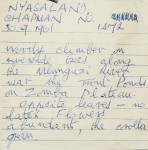 NYASALAND,
CHAPMAN No.
30.9.1961 1472
Woody climber on
riverside trees along
the Mlunguzi River
near the Trout Ponds
on Zomba Plateau.
Opposite leaves - no
latex. Flowers
abundant, the corolla
green.